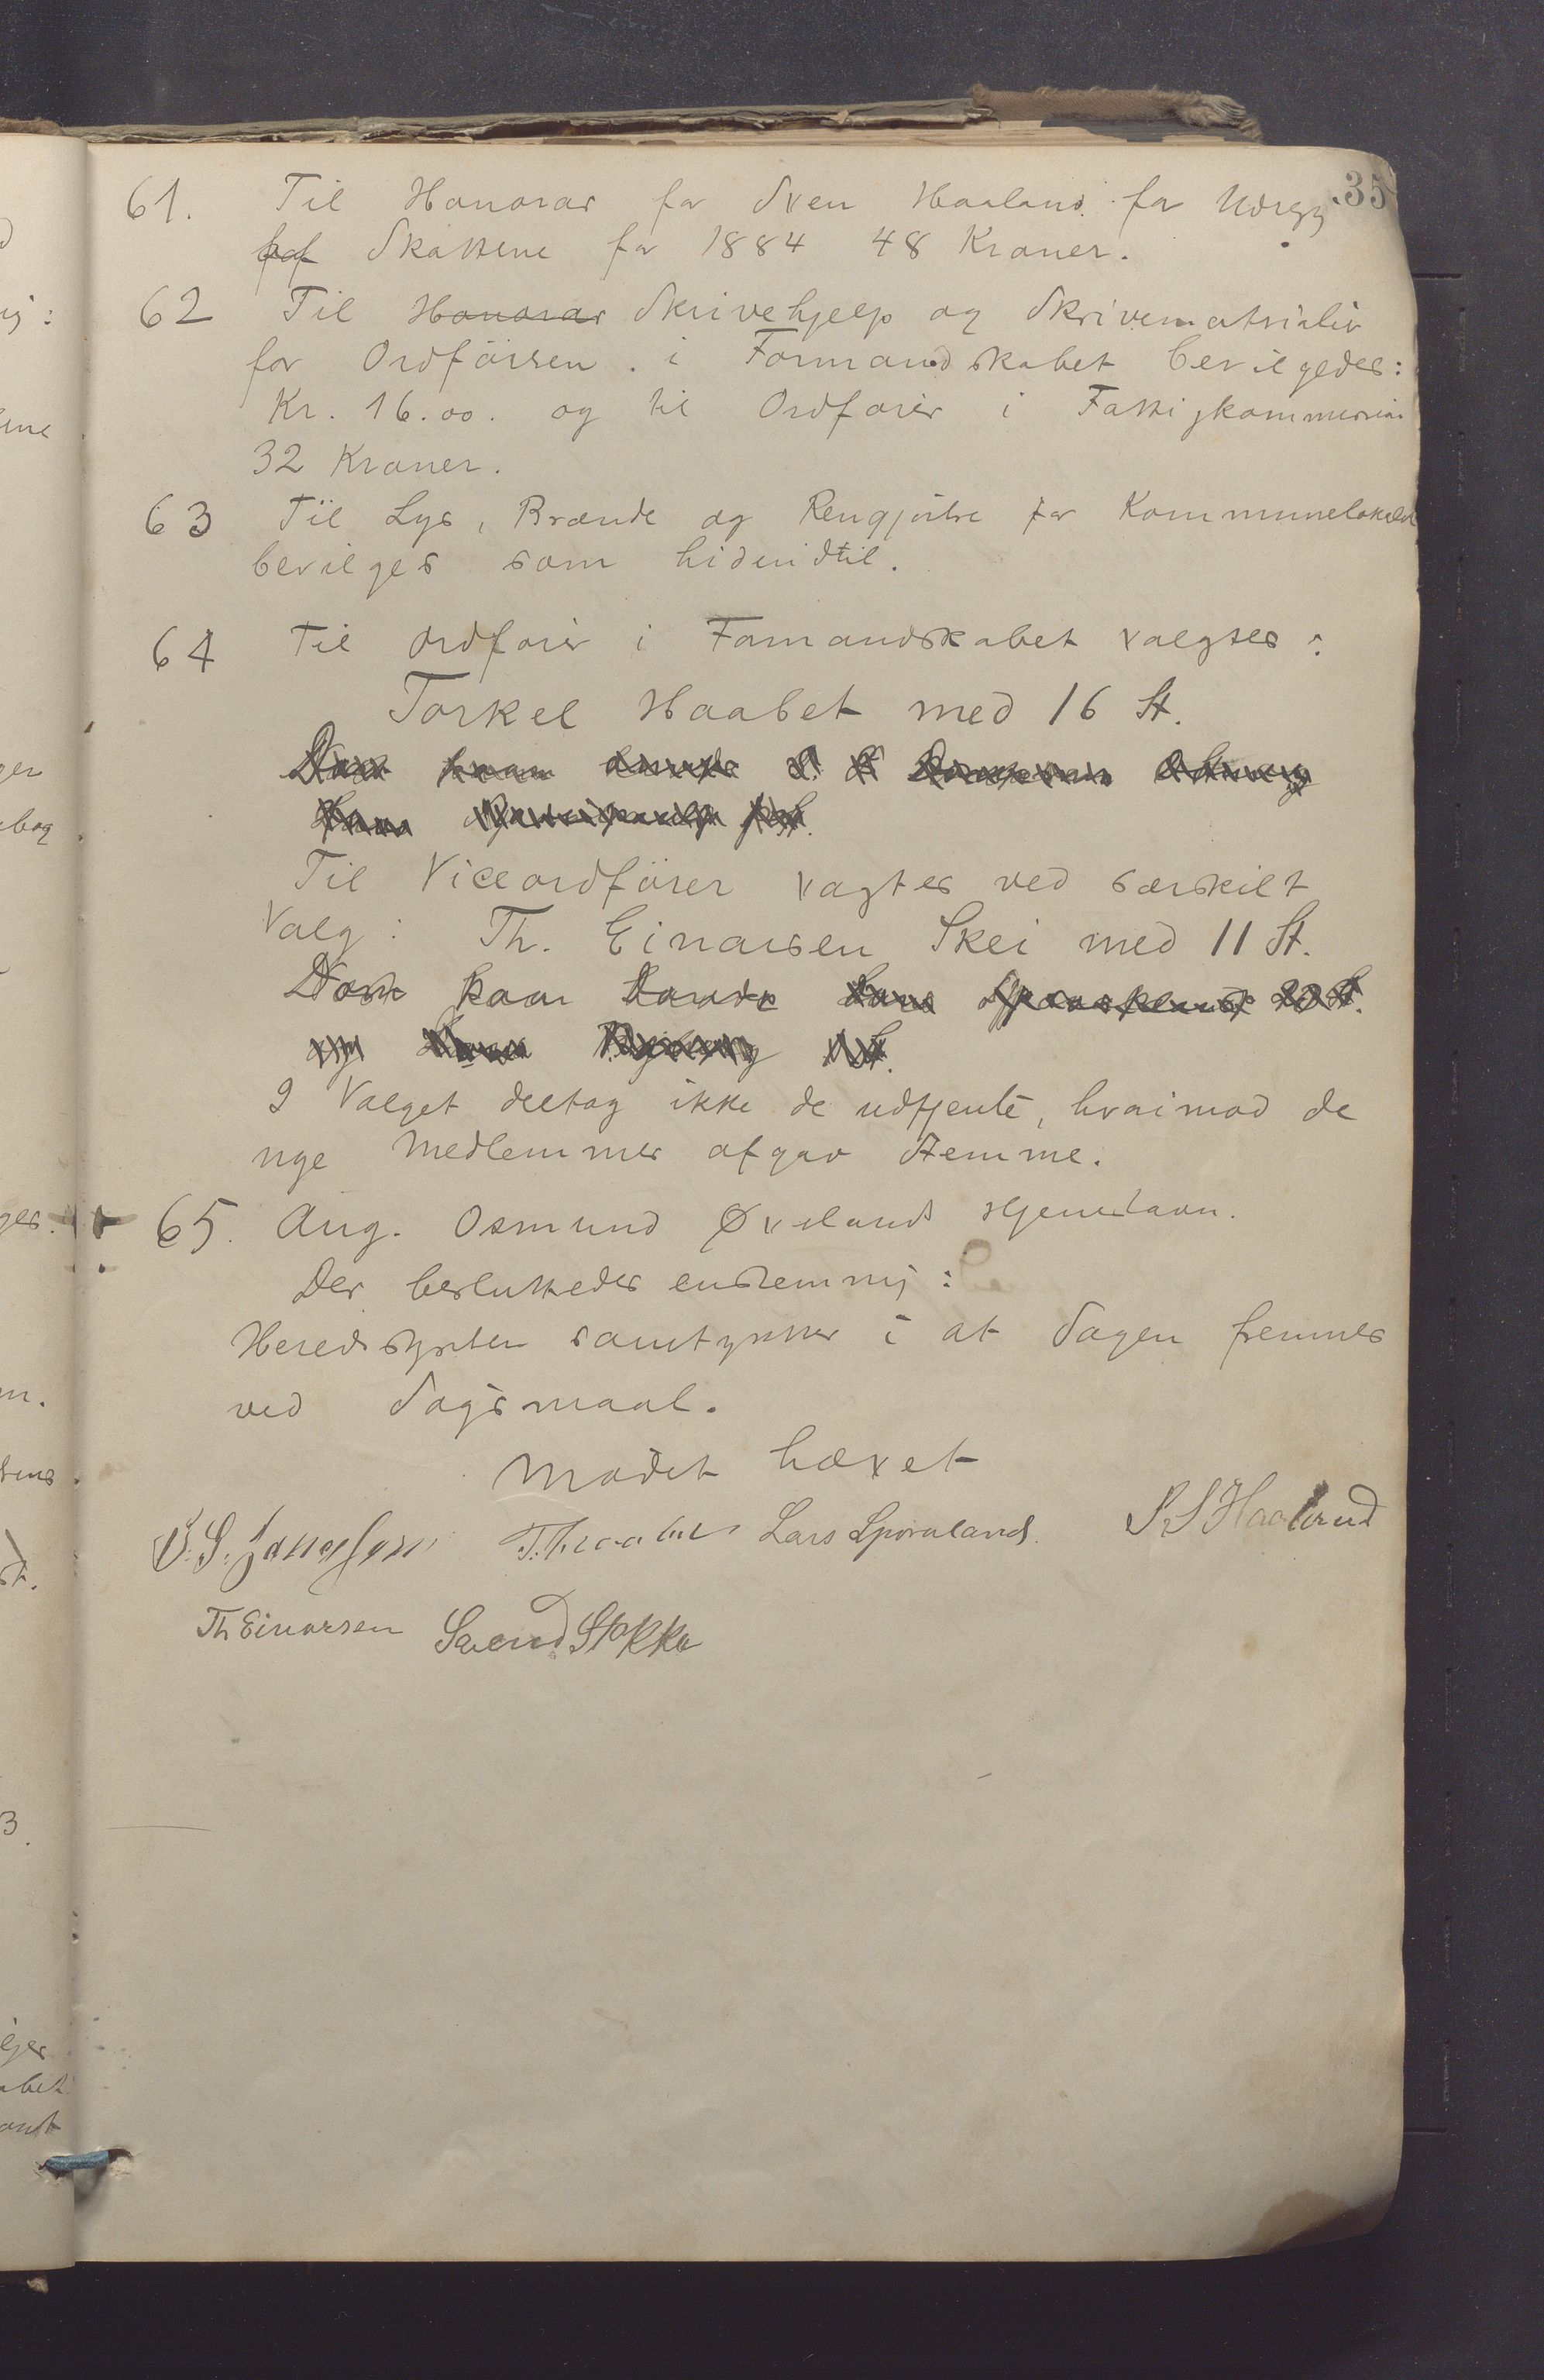 35
61. Til Honorar for Sven Haaland for Udregg
for Skattene for 1884 48 Kroner.
62 Til Honorar Skrivehjelp og Skrivematrialir
for Ordförren. i Formandskabet bevilgedes:
Kr. 16.00. og til Ordforer i Fattigkommission
32 Kroner.
63 Til Lys, Brænde og Rengjörlse for Kommunelokalet
bevilges som hidindtil.
64 Til Ordforer i Fomandskabet valgtes:
Torkel Haabet med 16 St.
Til Viceordförer vagtes ved særskilt
Valg: Th. Einarsen Skei med 11 St.
Dom kom
I Valget deltog ikke de udtjente, hvorimod de
nye Medlemmer afgav Stemme.
65. Ang. Osmund Øveland Hjemstavn.
Der besluttedes enstemmij:
Heredsstyrten samtykker i at Sagen fremmes
ved Sogsmaal.
Mødet hævet
T. Haabet Lars Spøraland. S S Haaland
Th Einarsen Svend Stokka